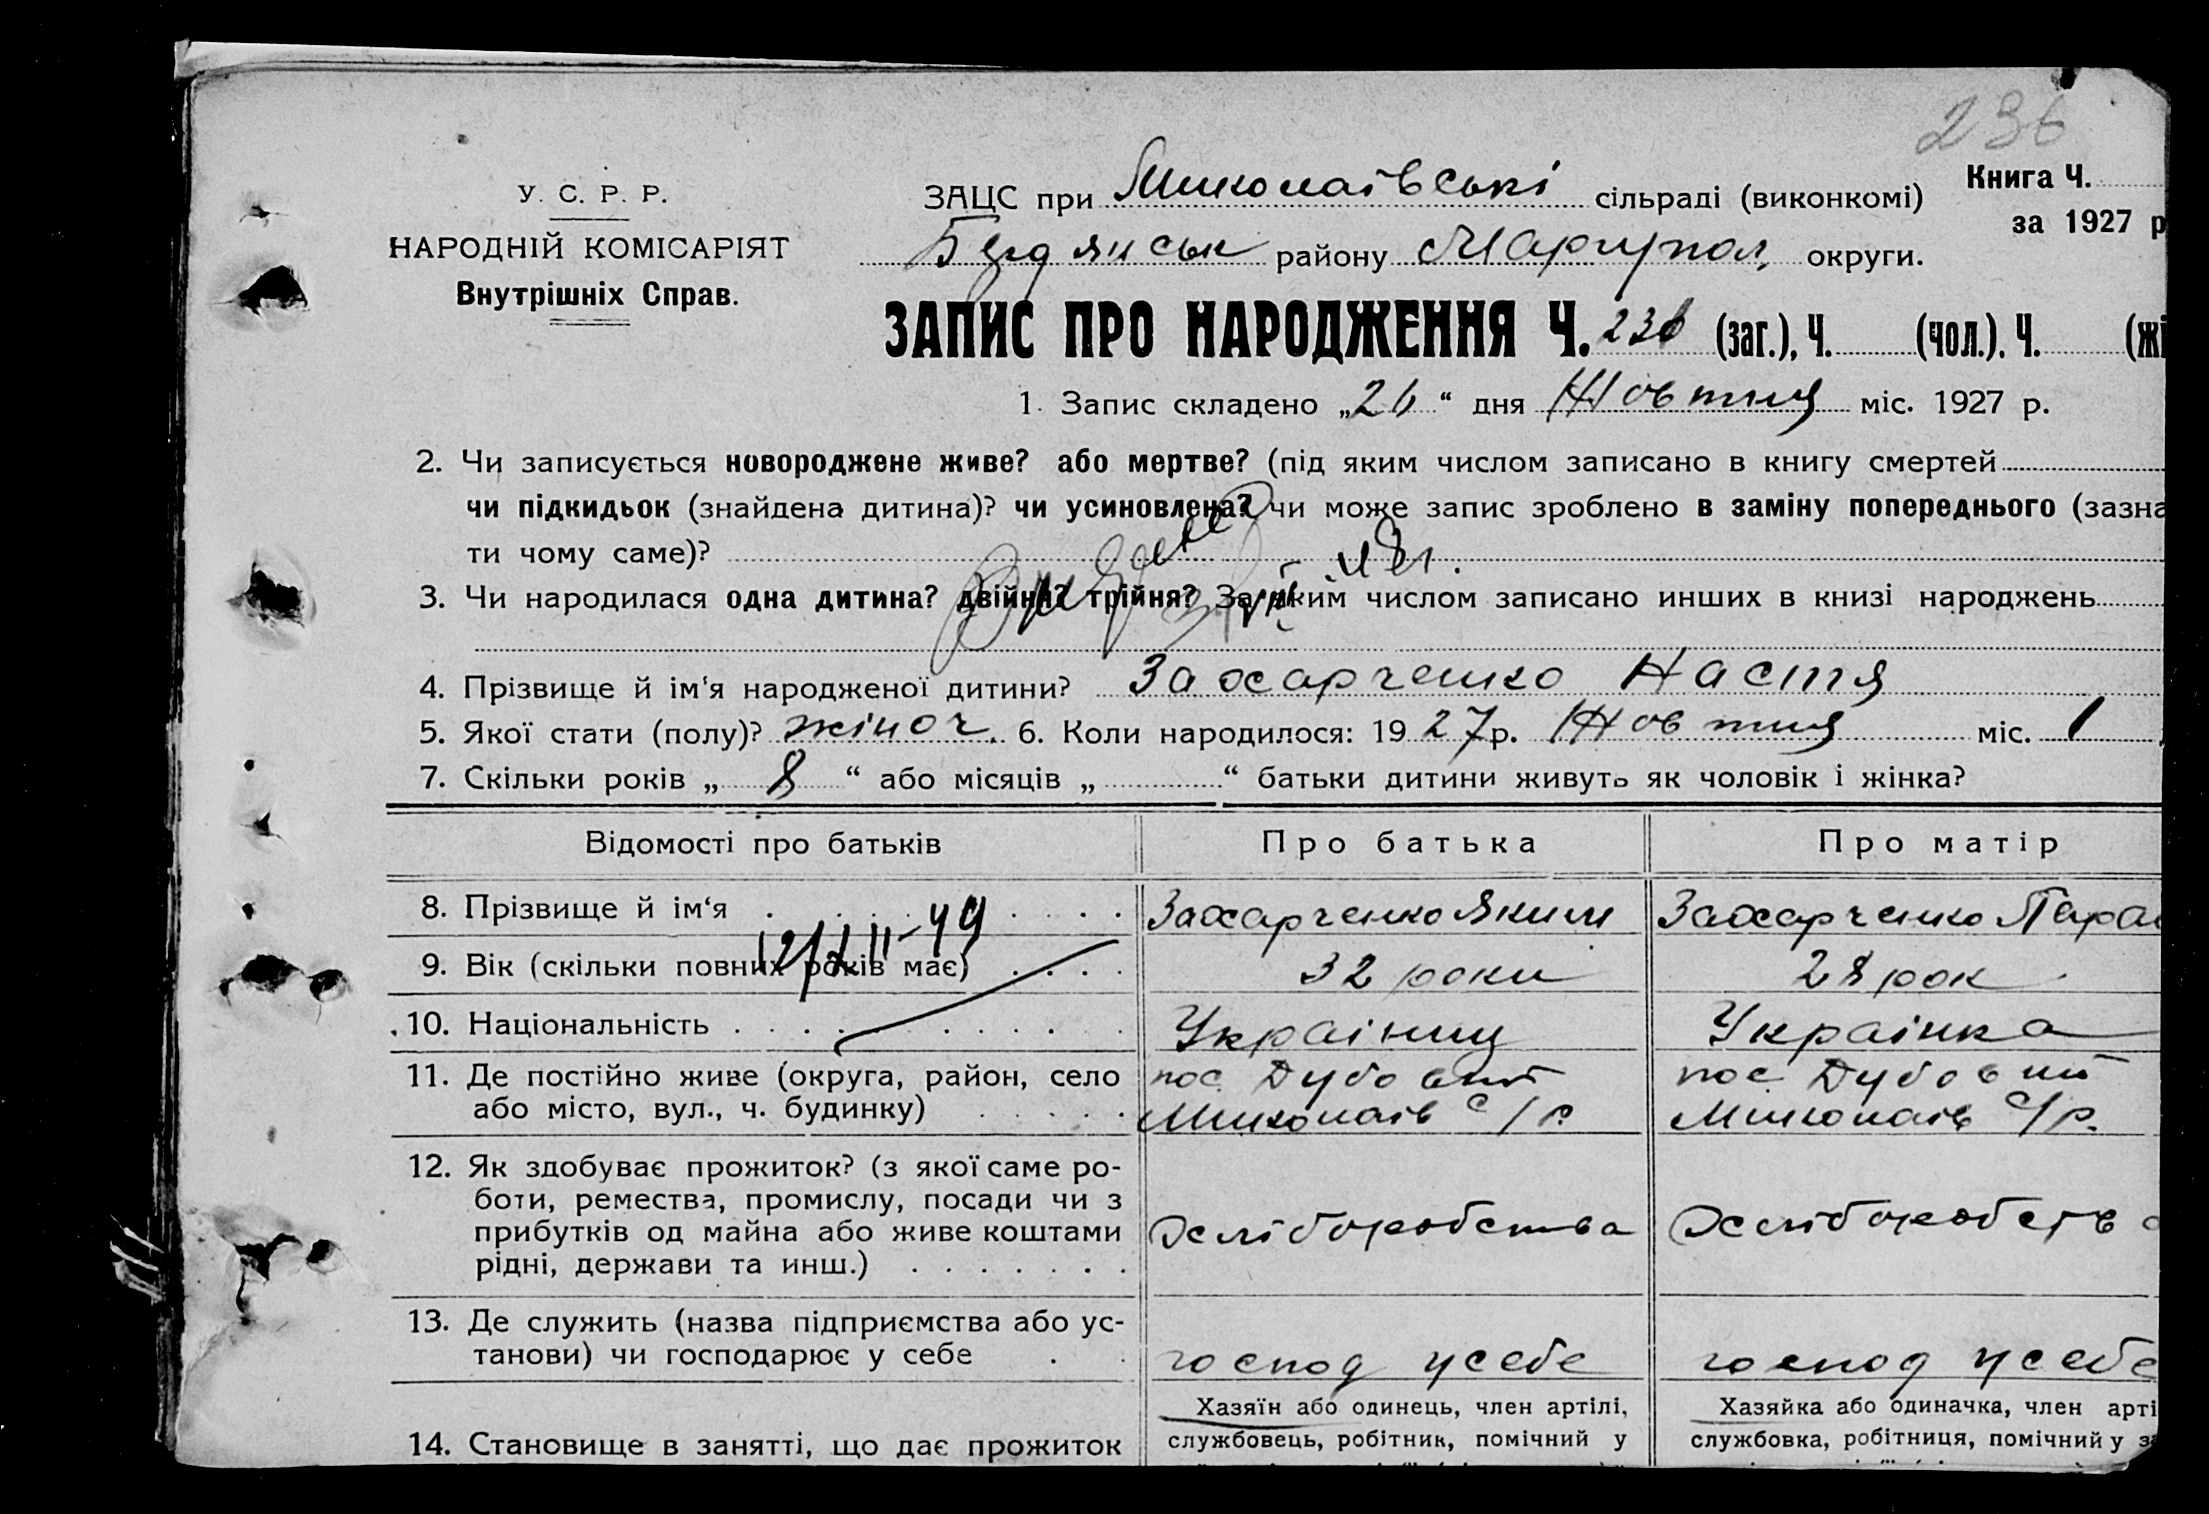 236
У. С. Р. Р.
НАРОДНІЙ КОМІСАРІЯТ
Внутрішніх Справ.
ЗАЦС при Миколаївські сільраді (виконкомі)
Книга Ч.
за 1927 р
Бердянськ району Маріупол. округи.
ЗАПИС ПРО НАРОДЖЕННЯ Ч. 236 (заг.), Ч. (чол.). Ч. (жі
1. Запис складено „26“ дня Жовтня міс. 1927 р.
2. Чи записується новороджене живе? або мертве? (під яким числом записано в книгу смертей
чи підкидьок (знайдена дитина)? чи усиновлена? чи може запис зроблено в заміну попереднього (зазна
ти чому саме)?
3. Чи народилася одна дитина? двійня? трійня? За яким числом записано инших в книзі народжень
4. Прізвище й ім'я народженої дитини? Захарченко Настя
5. Якої стати (полу)? жіноч. 6. Коли народилося: 1927 р. Жовтня міс. 1
7. Скільки років „ 8 “ або місяців „ “ батьки дитини живуть як чоловік і жінка?
Відомості про батьків Про батька Про матір
8. Прізвище й ім'я Захарченко Яким Захарченко Парас
9. Вік (скільки повних років має) 32 роки 28 рок
10. Національність Українец Українка
11. Де постійно живе (округа, район, село пос Дубовий пос Дубовий
або місто, вул., ч. будинку) Миколаїв с/р. Миколаїв с/р.
12. Як здобуває прожиток? (з якої саме ро-
боти, ремества, промислу, посади чи з
прибутків од майна або живе коштами хліборобства хліборобств
рідні, держави та инш.)
13. Де служить (назва підприємства або ус-
танови) чи господарює у себе господ у себе господ у себе
Хазяїн або одинець, член артілі, Хазяйка або одиначка, член арті
14. Становище в занятті, що дає прожиток службовець, робітник, помічний у службовка, робітниця, помічний у з